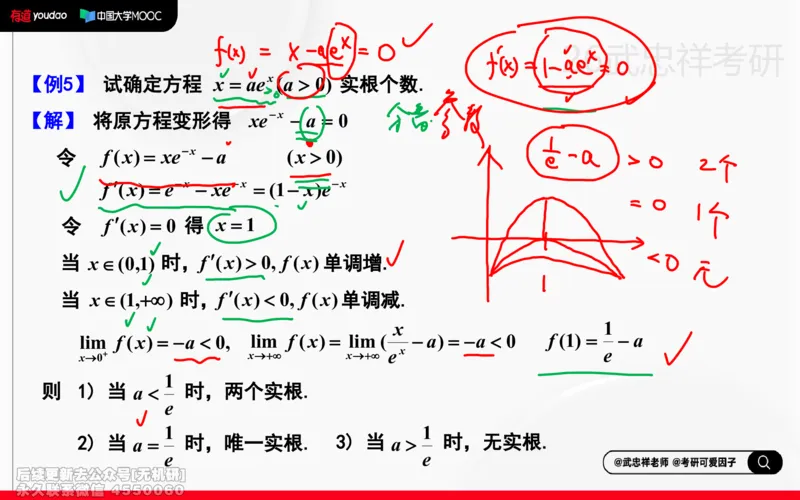 有道 youdao 中国大学MOOC
f(x) = x - ae^x = 0
f'(x) = 1 - ae^x = 0
武忠祥考研
【例5】 试确定方程 x = ae^x (a > 0) 实根个数.
>0
【解】 将原方程变形得 xe^{-x} - a = 0
分离 参数
令 f(x) = xe^{-x} - a (x > 0)
1/e - a > 0 2个
f'(x) = e^{-x} - xe^{-x} = (1 - x)e^{-x}
= 0 1个
令 f'(x) = 0 得 x = 1
< 0 无
当 x ∈ (0,1) 时, f'(x) > 0, f(x) 单调增.
1
当 x ∈ (1,+∞) 时, f'(x) < 0, f(x) 单调减.
lim_{x→0^+} f(x) = -a < 0, lim_{x→+∞} f(x) = lim_{x→+∞} (x/e^x - a) = -a < 0 f(1) = 1/e - a
则 1) 当 a < 1/e 时, 两个实根.
2) 当 a = 1/e 时, 唯一实根. 3) 当 a > 1/e 时, 无实根.
@武忠祥老师 @考研可爱因子
后续更新去公众号[无机研]
永久联系微信 4550060